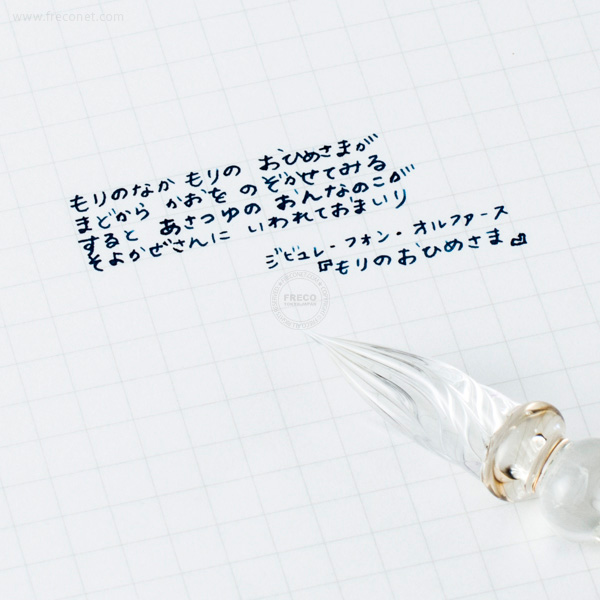 www.freconet.com
もりのなか もりの おひめさまが
まどから かおを のぞかせてみる
すると あさつゆの おんなのこが
そよかぜさんに いわれておまいり
ジビュレ・フォン・オルファース
『もりのおひめさま』
FRECO